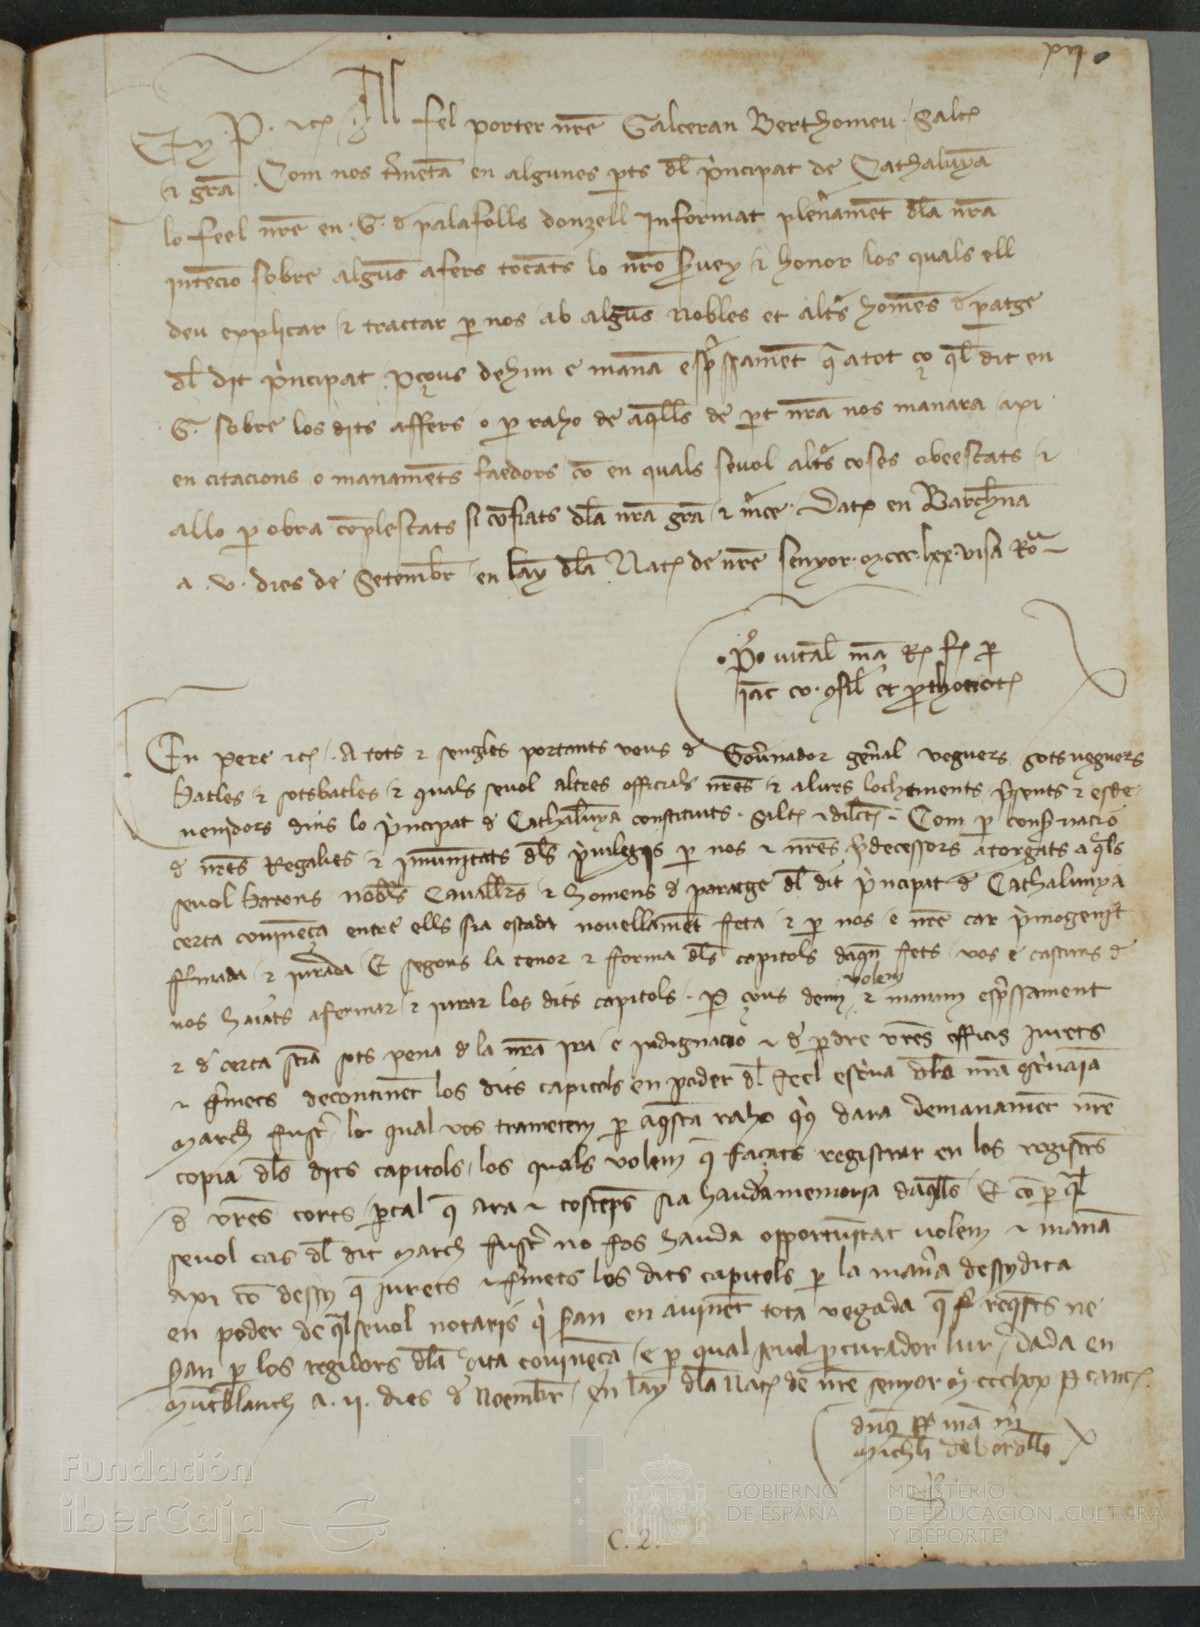 xij
En P. etc. Al feel porter nre Galceran Berthomeu Saltz
e gra Com nos trametã en algunes pts dl pncipat de Cathalunya
lo feel nre en G. d palafolls donzell informat plenament dla nra
intencio sobre alguns afers tocãts lo nro servey e honor los quals ell
deu explicar e tractar p nos ab alguns nobles et altrs homẽs d patge
dl dit pncipat pçous dehim e manã espssament q a tot ço ql dit en
G. sobre los dits affers o p raho de aqlls de pt nra vos manara axi
en citacions o manamẽts faedors cõ en quals sevol altrs coses obeescats e
allo p obra cõplescats si cõfiats dla nra gra e mce. Dat en Barchna
a .v. dies de Setembr en lãy dla Nat de nre senyor. m.ccc.lxx. visa Ro
En pere etc. A tots e sengles portants veus d Govnador genal veguers sotsveguers
batles e sotsbatles e quals sevol altres officials nres e a lurs lochtinents psents e esde
venidors dins lo pncipat d Cathalunya constituits. Salt e dilct. Com p consvacio
d nres Regalies e imunitats dls pvilegis p nos e nres pdecessors atorgats a qls
sevol barons nobles Cavallrs e homens d paratge dl dit pncipat d Cathalunya
certa covinẽça entre ells sia estada novellamẽt feta e p nos e nre car pmogenit
fmada e jurada E segons la tenor e forma dls capitols daqn fets vos e cascuns d
vos haiats a fermar e jurar los dits capitols. P çous dem volem e manam espssament
e d certa scia sots pena d la nra ira e indignacio e d pdre vres officis jurets
e fmets decontinẽt los dits capitols en poder dl feel escriva dla nra escrivania
March fustr lo qual vos trametem p aqsta raho qus dara de manamẽt nre
copia dls dits capitols los quals volem q façats registrar en los registres
d vres corts ptal q ara e tostẽps sia hauda memoria daqlls E cõ p ql
sevol cas dl dit march fustr no fos hauda opportunitat volem e manã
axi cõ dessus q jurets e fmets los dits capitols p la manra dessus dita
en poder de ql sevol notaris q san en avinẽt tota vegada q reqsts ne
san p los regidors dla dita covinẽça e p qual sevol pcurador lur Dada en
Mũtblanch a .ii. dies d Noembr en lãy dla Nat de nre senyor M ccc lxx P canc.
C. 2.
Fundación
iberCaja
GOBIERNO
DE ESPAÑA
MINISTERIO
DE EDUCACIÓN, CULTURA
Y DEPORTE